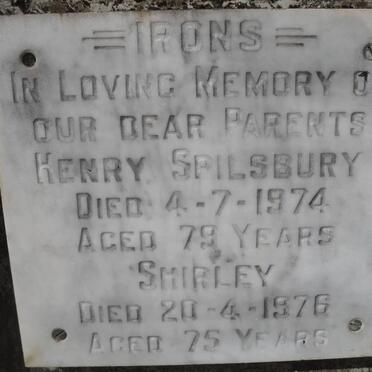 =IRONS=
IN LOVING MEMORY O
OUR DEAR PARENTS
HENRY SPILSBURY
DIED 4-7-1974
AGED 79 YEARS
SHIRLEY
DIED 20-4-1976
AGED 75 YEARS